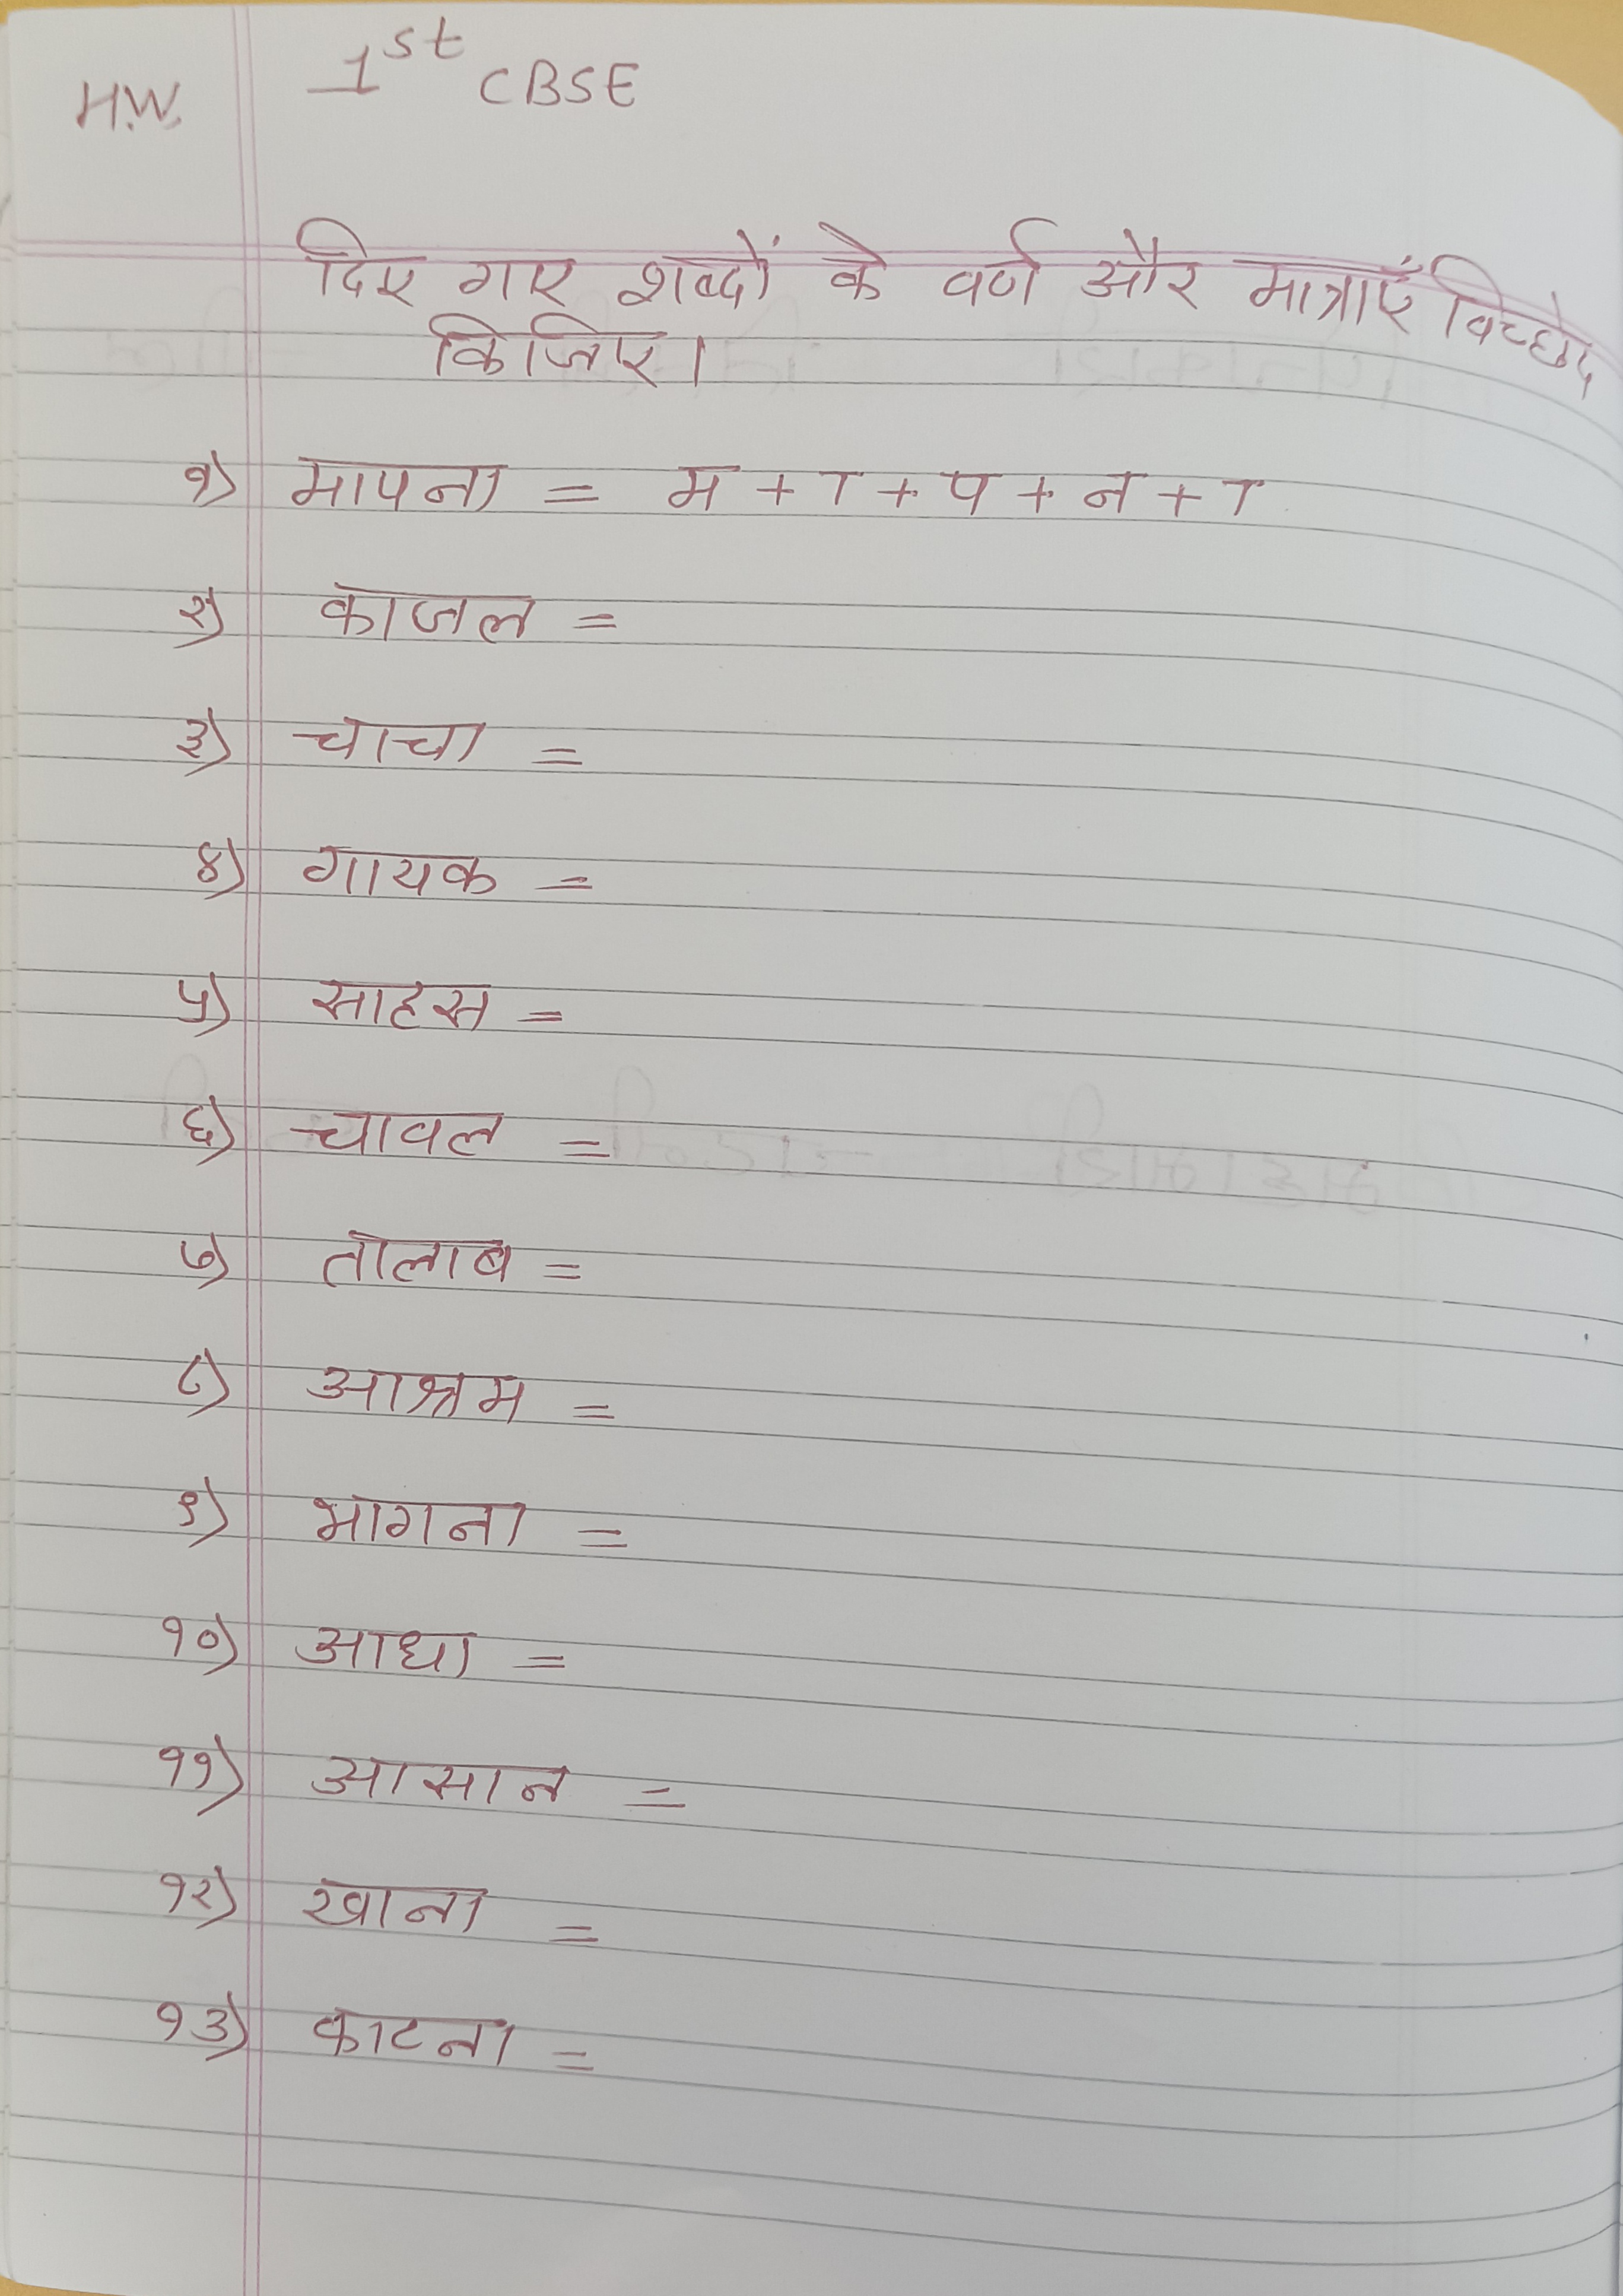 1st CBSE
H.W.
दिए गए शब्दों के वर्ण और मात्राएँ विच्छेद
किजिए।
१) मापना = म + ा + प + न + ा
२) काजल =
३) चाचा =
४) गायक =
५) साहस =
६) चावल =
७) तालाब =
८) आश्रम =
९) भागना =
१०) आधा =
११) आसान =
१२) खाना =
१३) काटना =